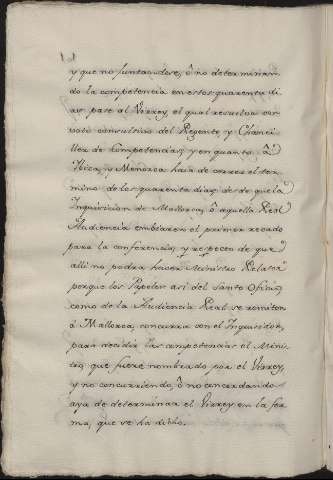 y que no juntandose, ô no determinan-
do la competencia en estos quarenta di-
as, pase al Virrey el qual resuelva con
voto consultivo del Regente, y Chanci-
ller de Competencias, y en quanto â
Ibiza, y Menorca haia de correr el ter-
mino de los quarenta dias desde que la
Inquisicion de Mallorca, ô aquella Real
Audiencia embiaren el primer recado
para la conferencia, y respecto de que
alli no podrá hacer Ministro Relator
porque los Papeles asi del Santo Oficio,
como de la Audiencia Real se remiten
á Mallorca, concurra con el Inquisidor,
para decidir las competencias el Minis-
tro, que fuere nombrado por el Virrey,
y no concurriendo, ô no concordando
aya de determinar el Virrey en la for-
ma, que se ha dicho.